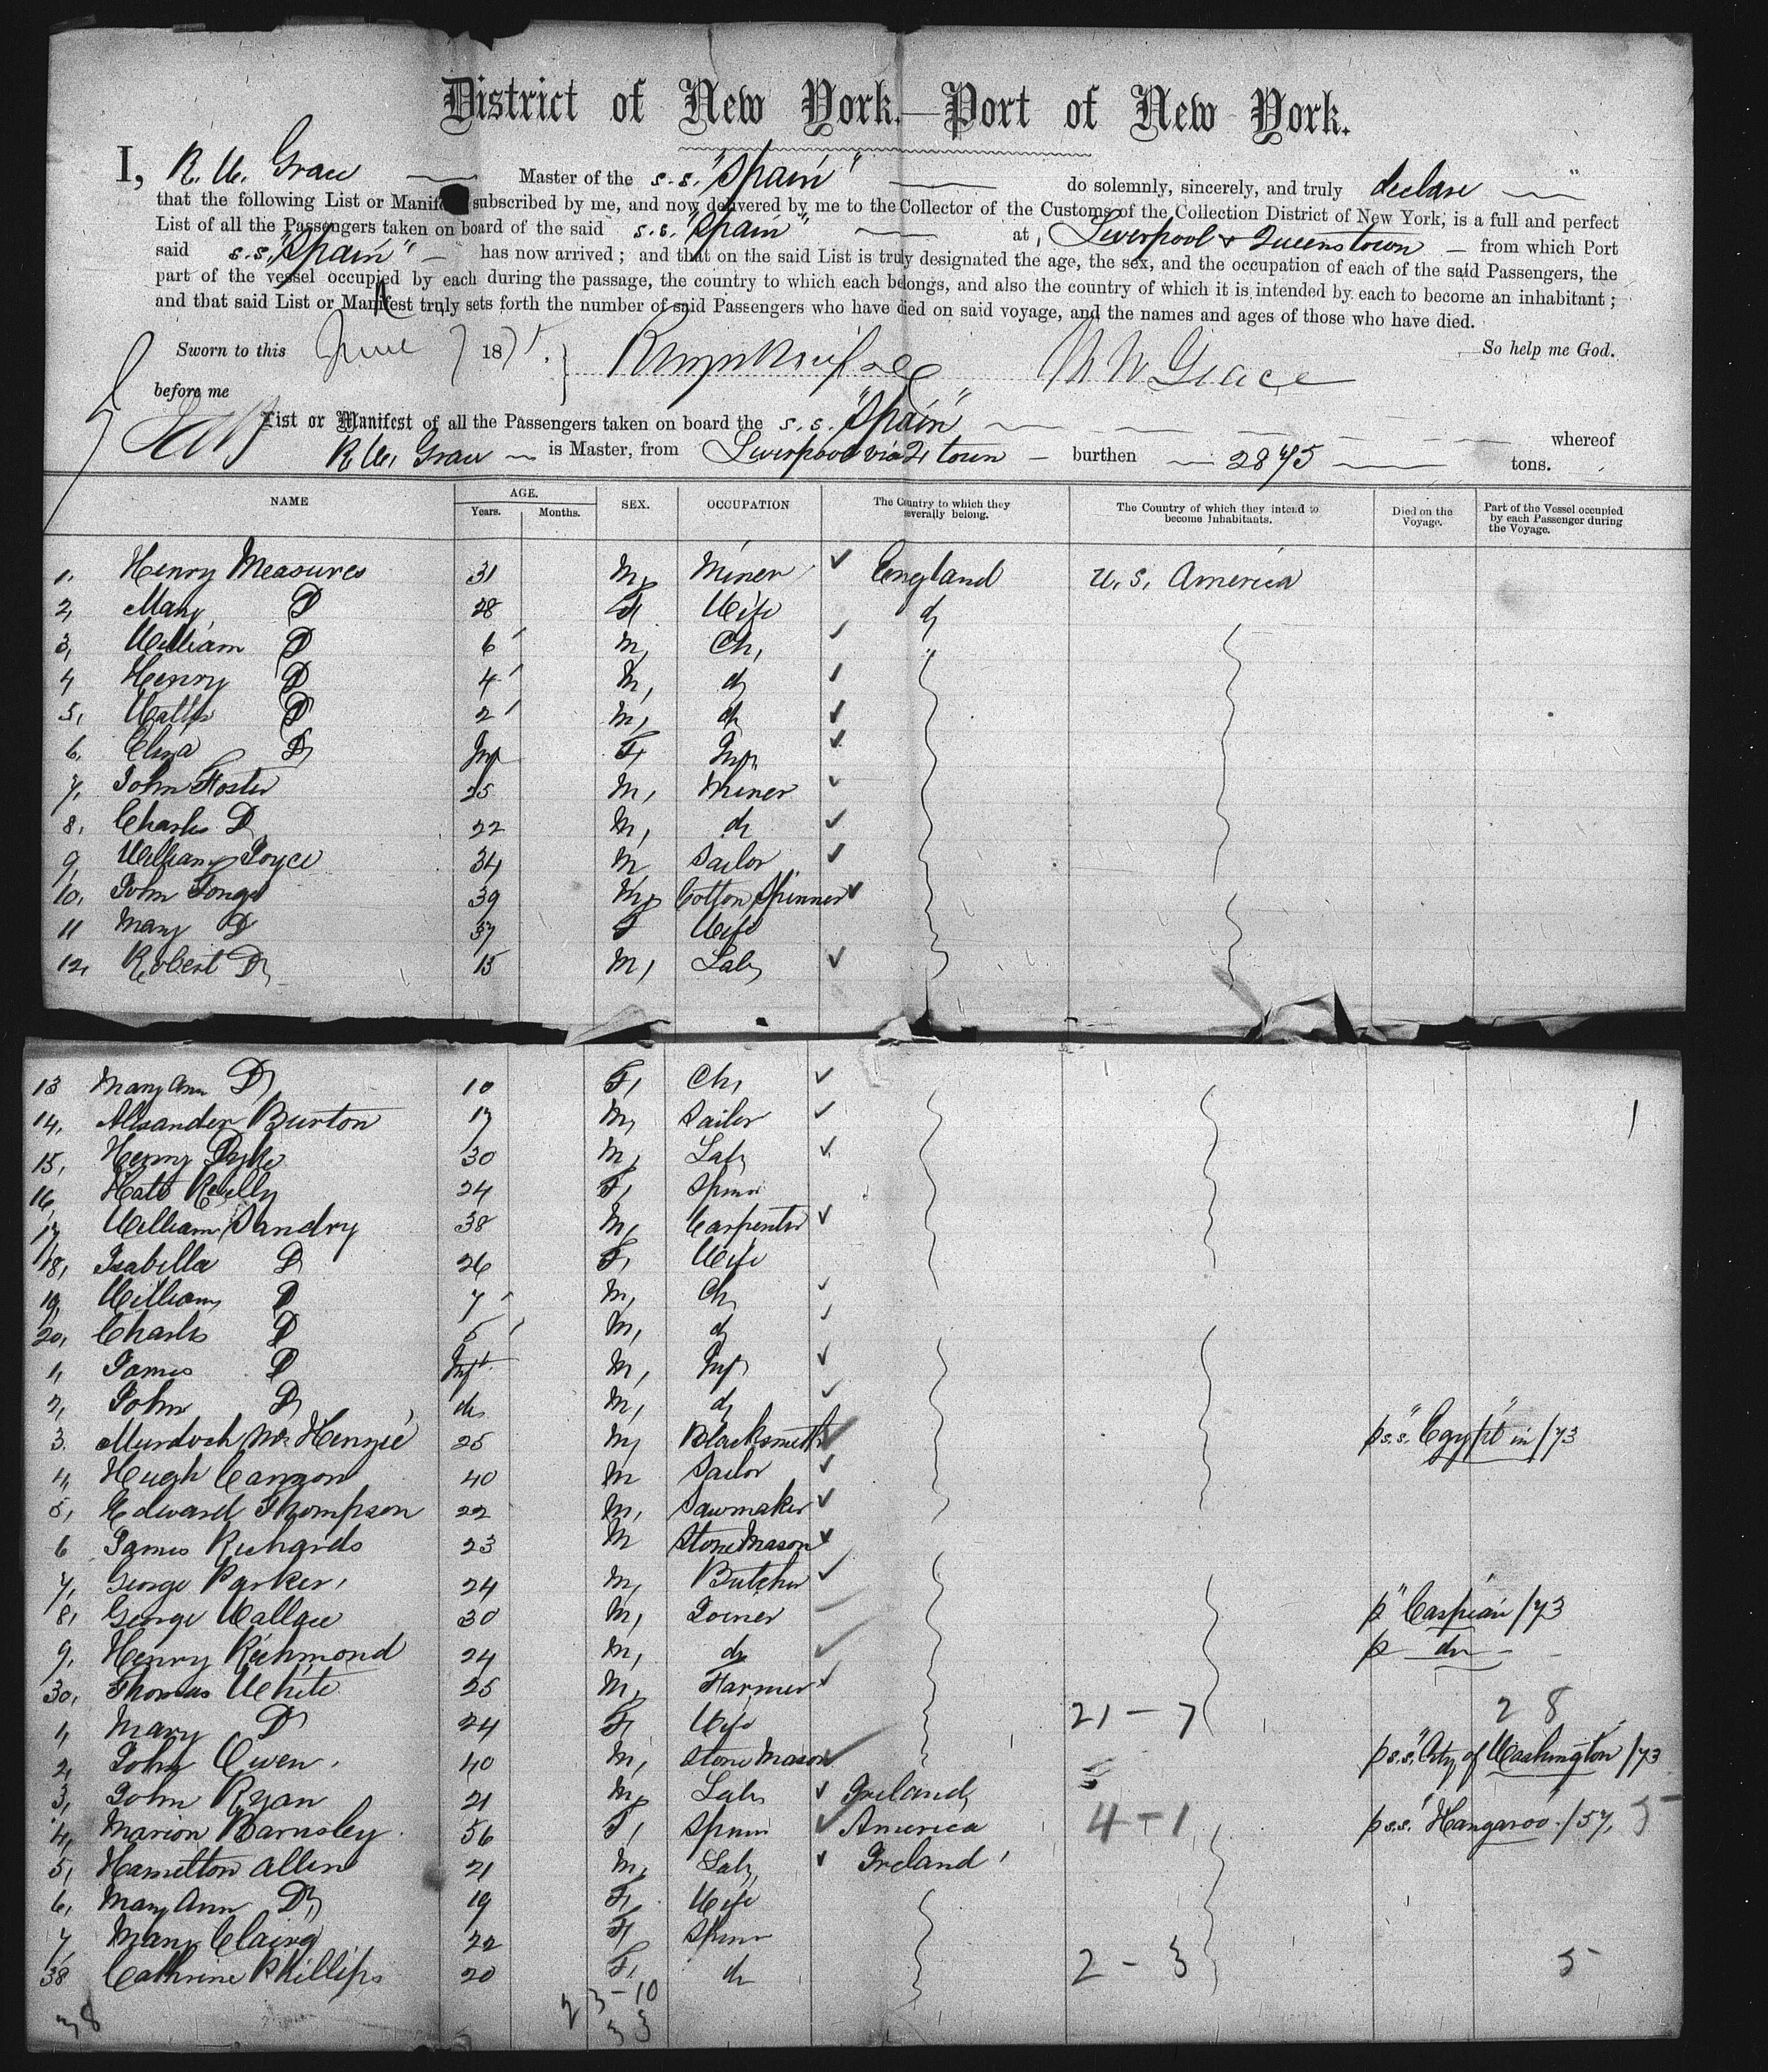 District of New York.—Port of New York.
I, R. W. Grace Master of the s.s. "Spain" do solemnly, sincerely, and truly declare
that the following List or Manifest subscribed by me, and now delivered by me to the Collector of the Customs of the Collection District of New York, is a full and perfect
List of all the Passengers taken on board of the said s.s. "Spain" at, Liverpool & Queenstown from which Port
said s.s. "Spain" has now arrived; and that on the said List is truly designated the age, the sex, and the occupation of each of the said Passengers, the
part of the vessel occupied by each during the passage, the country to which each belongs, and also the country of which it is intended by each to become an inhabitant;
and that said List or Manifest truly sets forth the number of said Passengers who have died on said voyage, and the names and ages of those who have died.
Sworn to this June 7 1875. So help me God.
R W Grace
before me
List or Manifest of all the Passengers taken on board the s.s. "Spain" whereof
R. W. Grace is Master, from Liverpool via Q town burthen 2875 tons.
NAME AGE. Years. Months. SEX. OCCUPATION The Country to which they severally belong. The Country of which they intend to become Inhabitants. Died on the Voyage. Part of the Vessel occupied by each Passenger during the Voyage.
1. Henry Measures 31 M, Miner England U.S. America
2, Mary D 28 F Wife d
3, William D 6 M, Ch,
4 Henry D 4 M, d
5, Walter D 2 M, d
6. Eliza D Inf F, Inf
7, John Foster 25 M, Miner
8, Charles D 22 M, d
9, William Joyce 34 M Sailor
10, John Tonge 39 M, Cotton Spinner
11 Mary D 37 F Wife
12, Robert D 15 M, Lab
13 Mary Ann D 10 F, Ch,
14, Alexander Burton 17 M, Sailor
15, Henry 30 M, Lab
16, Kate Reilly 24 F, Spinr
17 William Sandry 38 M, Carpenter
18, Isabella D 26 F, Wife
19, William D 7 M, Ch,
20, Charles D 5 M, d
1, James D Inf M, Inf
2, John D do M, d
3. Murdoch McKenzie 25 M, Blacksmith p s.s. "Egypt" in /73
4, Hugh Cannon 40 M Sailor
5, Edward Thompson 22 M, Sawmaker
6 James Richards 23 M Stone Mason
7, George Parker, 24 M, Butcher
8, George Wallace 30 M, Joiner p "Caspian" /73
9, Henry Richmond 24 M, do p do
30, Thomas White 25 M, Farmer
21 - 7 28
1, Mary D 24 F, Wife
2, John Owen 40 M, Stone Mason p s.s. "City of Washington" /73
3, John Ryan 21 M, Lab Ireland
4, Marion Barnsley 56 F, Spinr America 4 - 1 p s.s. "Kangaroo" /57, 5
5, Hamelton Allen 21 M, Lab, Ireland
6, Mary Ann D 19 F, Wife
7, Mary 22 F, Spinr
38 Cathrine Phillips 20 F, do 2 - 3 5
38 23 - 10
33